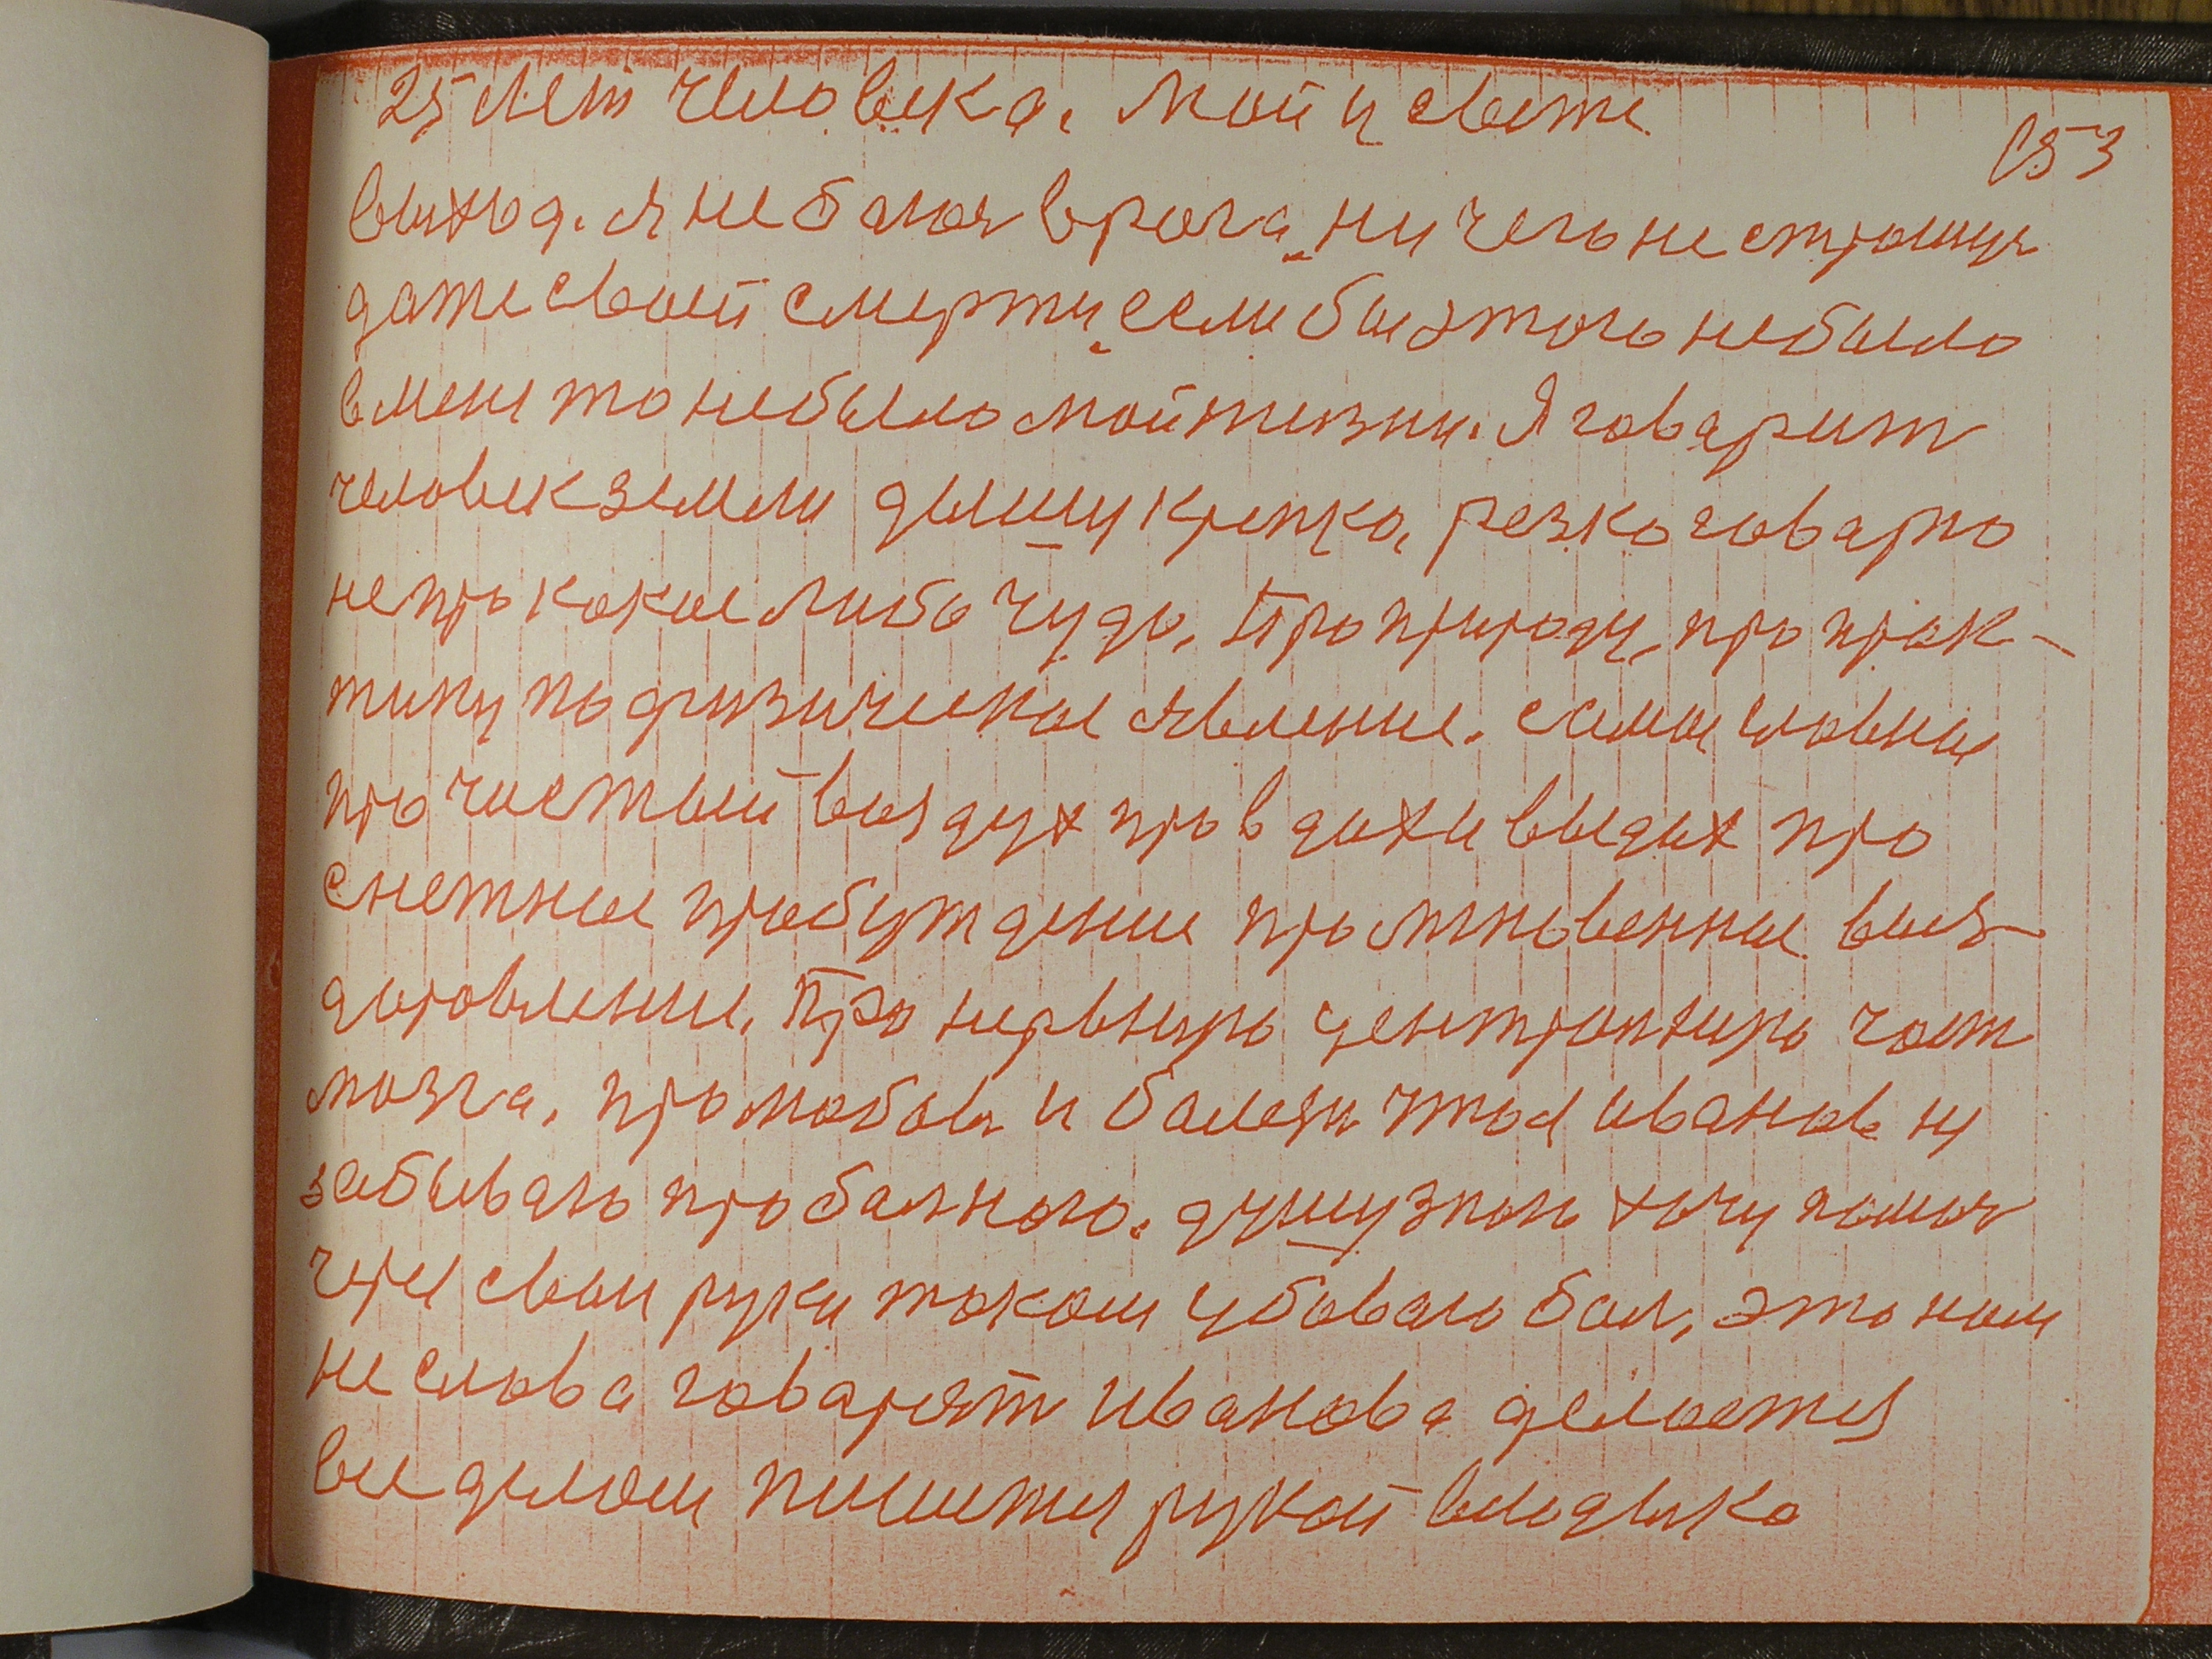 25 лет человека. Мой и свете
153
выхъод. я не баюся врага, ничего не строшуся
даже своей смерти, если бы этого не было
в мене то не было мой жизни. Я говарит
человек земли дышу крепко, резко говарю
не про какое либо чудо. Про природу, про прак-
тику по физическое явление. самое гловное
про чистый воздух про вдох и выдох про
снежное пробуждение про мгновенное выз-
доровление. Про нервную центролную част
мозга. про любов и болезн что я иванов ни
забываю про болного. душу знаю хочу помоч
через свои руки током убоваю бол, это нам
не слова говарят иванова делоется
все делом пишется рукой владыка